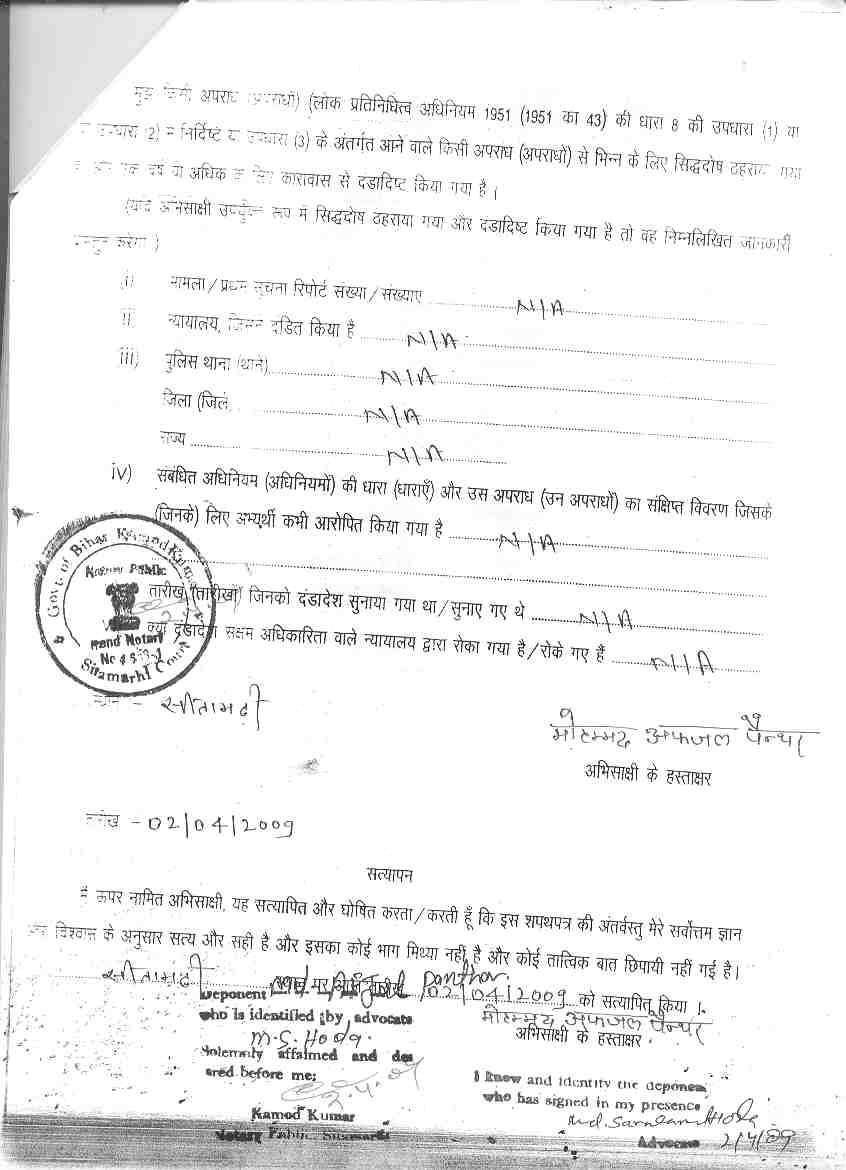 अपराध (अपराधों) (लोक प्रतिनिधित्व अधिनियम 1951 (1951 का 43) की धारा 8 की उपधारा (1) या
उपधारा (2) में निर्दिष्ट या उपधारा (3) के अंतर्गत आने वाले किसी अपराध (अपराधों) से भिन्न के लिए सिद्धदोष ठहराया गया
वर्ष या अधिक के लिए कारावास से दडादिष्ट किया गया है ।
(यदि अभिसाक्षी उपर्युक्त रूप में सिद्धदोष ठहराया गया और दडादिष्ट किया गया है तो वह निम्नलिखित जानकारी
प्रस्तुत करेगा)
i) मामला / प्रथम सूचना रिपोर्ट संख्या / संख्याए N/A
ii न्यायालय, जिसने दंडित किया है N/A
iii) पुलिस थाना (थाने) N/A
जिला (जिले N/A
राज्य N/A
iv) संबंधित अधिनियम (अधिनियमों) की धारा (धाराएँ) और उस अपराध (उन अपराधों) का संक्षिप्त विवरण जिसके
(जिनके) लिए अभ्यर्थी कभी आरोपित किया गया है N/A
तारीख (तारीखों) जिनको दंडादेश सुनाया गया था / सुनाए गए थे N/A
क्या दंडादेश सक्षम अधिकारिता वाले न्यायालय द्वारा रोका गया है / रोके गए हैं N/A
Govt. of Bihar
Notary Public
Notary
Sitamarhi Court
स्थान - सीतामढ़ी
मोहम्मद अफजल पैन्थर
अभिसाक्षी के हस्ताक्षर
तारीख - 02/04/2009
सत्यापन
मैं ऊपर नामित अभिसाक्षी, यह सत्यापित और घोषित करता / करती हूँ कि इस शपथपत्र की अंतर्वस्तु मेरे सर्वोत्तम ज्ञान
और विश्वास के अनुसार सत्य और सही है और इसका कोई भाग मिथ्या नहीं है और कोई तात्विक बात छिपायी नहीं गई है।
सीतामढ़ी Panthar 02/04/2009 को सत्यापित किया ।
Deponent
मोहम्मद अफजल पैन्थर
who is identified by advocate
अभिसाक्षी के हस्ताक्षर
M.S. Hoda.
Solemnly affaimed and dec
ared before me;
I know and identity the deponen
who has signed in my presence
Kamod Kumar
Notary Public, Sitamarhi
Advocate 2/4/09